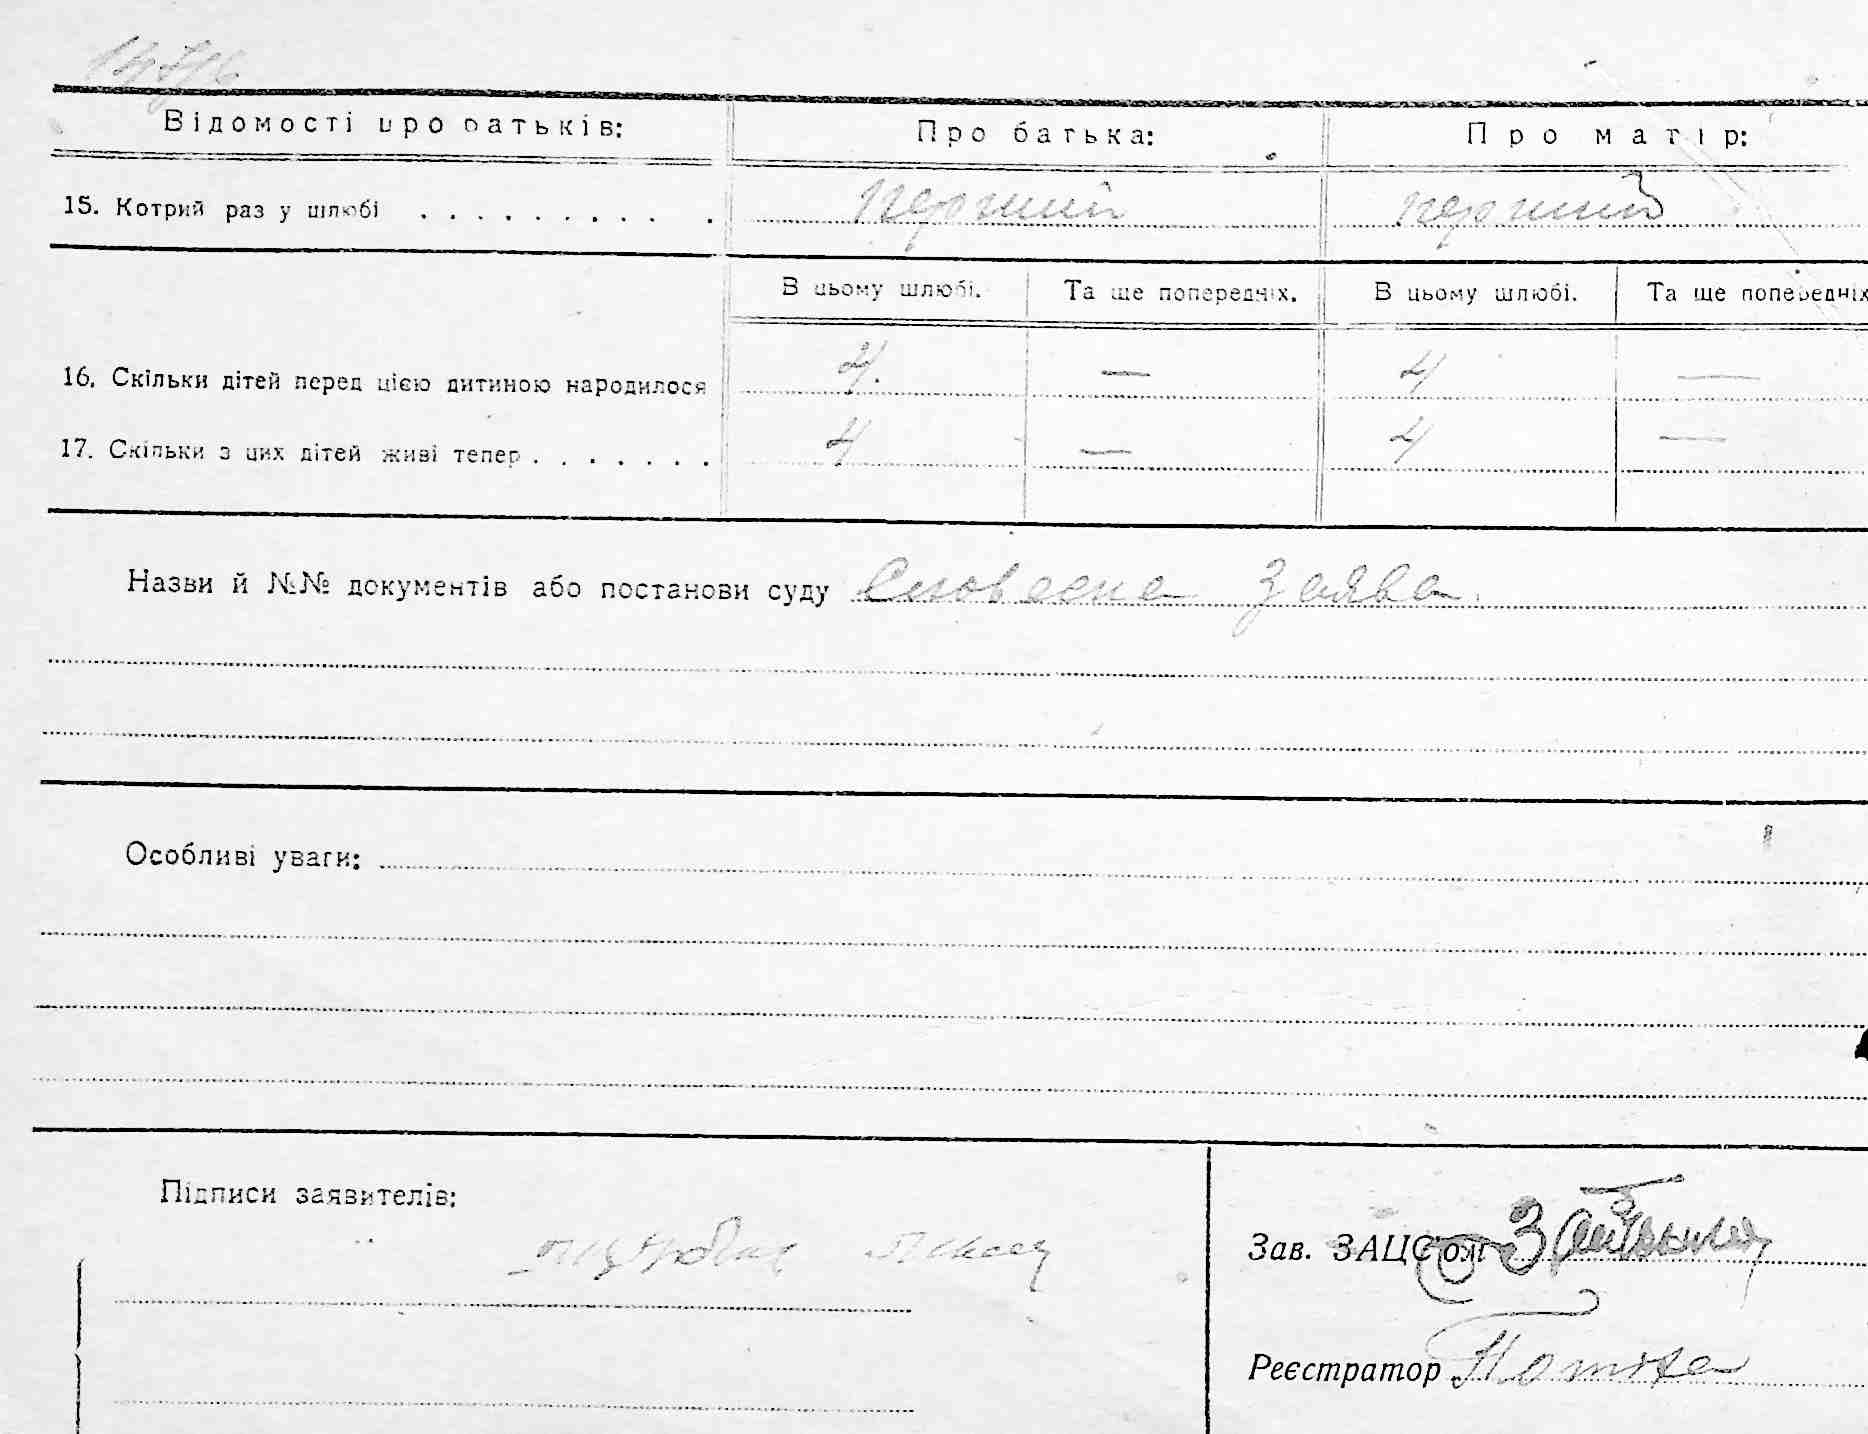 Відомості про батьків: Про батька: Про матір:
15. Котрий раз у шлюбі . . . . . . . . . . . перший перший
В цьому шлюбі. Та ще попередніх. В цьому шлюбі. Та ще попередніх
16. Скільки дітей перед цією дитиною народилося 4. — 4 —
17. Скільки з цих дітей живі тепер . . . . . . . 4 — 4 —
Назви й №№ документів або постанови суду Словесна заява.
Особливі уваги:
Підписи заявителів:
Зав. ЗАЦС'ом
Реєстратор